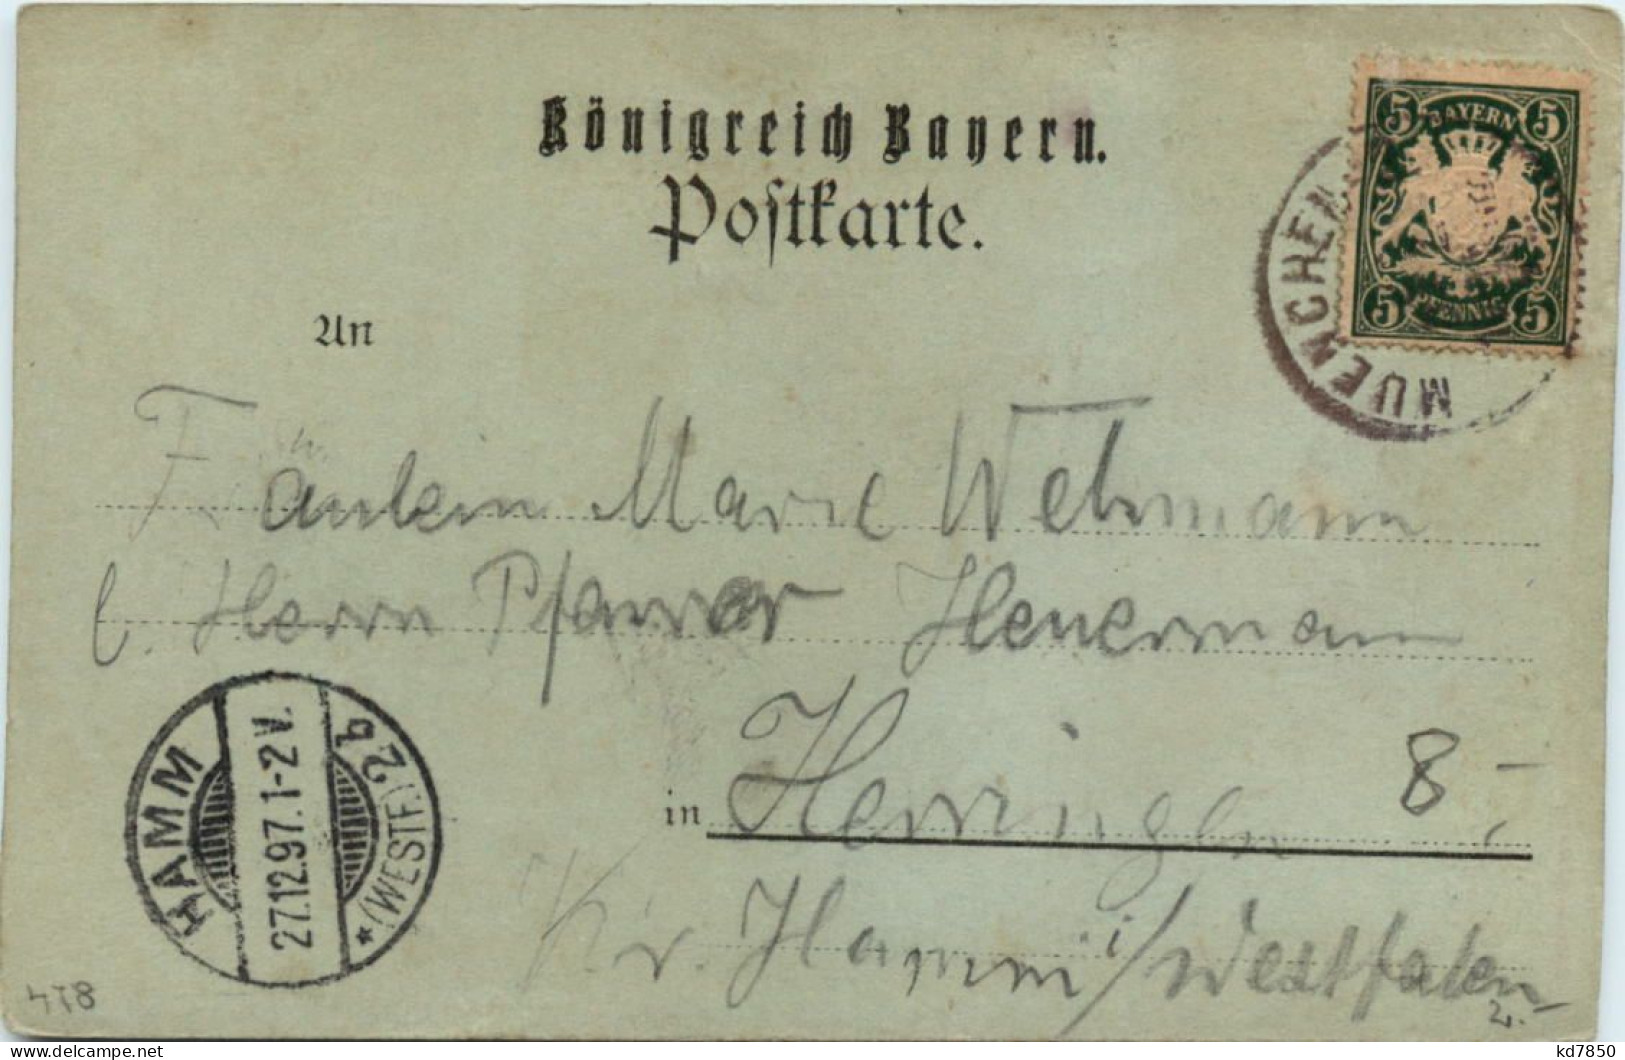 Königreich Bayern.
Postkarte.
5 BAYERN 5
5 PFENNIG 5
MUENCHEN
An
Fräulein Marie Wehmann
b. Herrn Pfarrer Heuermann
in Herringen
8,-
Kr. Hamm i/Westfalen
HAMM
27.12.97.1-2 V.
*(WESTF.) 2b
2.
kd7850